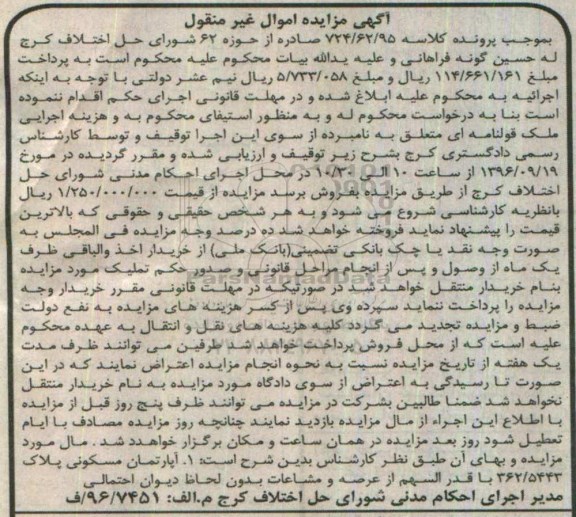 آگهی مزایده اموال غیر منقول
بموجب پرونده کلاسه ۷۲۴/۶۲/۹۵ صادره از حوزه ۶۲ شورای حل اختلاف کرج
له حسین گونه فراهانی و علیه یدالله بیات محکوم علیه محکوم است به پرداخت
مبلغ ۱۱۴/۶۶۱/۱۶۱ ریال و مبلغ ۵/۷۳۳/۰۵۸ ریال نیم عشر دولتی با توجه به اینکه
اجرائیه به محکوم علیه ابلاغ شده و در مهلت قانونی اجرای حکم اقدام ننموده
است بنا به درخواست محکوم له و به منظور استیفای محکوم به و هزینه اجرایی
ملک قولنامه ای متعلق به نامبرده از سوی این اجرا توقیف و توسط کارشناس
رسمی دادگستری کرج بشرح زیر توقیف و ارزیابی شده و مقرر گردیده در مورخ
۱۳۹۶/۰۹/۱۹ از ساعت ۱۰ الی ۱۰/۳۰ در محل اجرای احکام مدنی شورای حل
اختلاف کرج از طریق مزایده بفروش برسد مزایده از قیمت ۱/۲۵۰/۰۰۰/۰۰۰ ریال
بانظریه کارشناسی شروع می شود و به هر شخص حقیقی و حقوقی که بالاترین
قیمت را پیشنهاد نماید فروخته خواهد شد ده درصد وجه مزایده فی المجلس به
صورت وجه نقد یا چک بانکی تضمینی(بانک ملی) از خریدار اخذ والباقی ظرف
یک ماه از وصول و پس از انجام مراحل قانونی و صدور حکم تملیک مورد مزایده
بنام خریدار منتقل خواهد شد. در صورتیکه در مهلت قانونی مقرر خریدار وجه
مزایده را پرداخت ننماید سپرده وی پس از کسر هزینه های مزایده به نفع دولت
ضبط و مزایده تجدید می گردد کلیه هزینه های نقل و انتقال به عهده محکوم
علیه است که از محل فروش پرداخت خواهد شد طرفین می توانند ظرف مدت
یک هفته از تاریخ مزایده نسبت به نحوه انجام مزایده اعتراض نمایند که در این
صورت تا رسیدگی به اعتراض از سوی دادگاه مورد مزایده به نام خریدار منتقل
نخواهد شد ضمنا طالبین بشرکت در مزایده می توانند ظرف پنج روز قبل از مزایده
با اطلاع این اجراء از مال مزایده بازدید نمایند چنانچه روز مزایده مصادف با ایام
تعطیل شود روز بعد مزایده در همان ساعت و مکان برگزار خواهدد شد . مال مورد
مزایده و بهای آن طبق نظر کارشناس بدین شرح است: ۱. آپارتمان مسکونی پلاک
۳۶۲/۵۴۴۳ با قدر السهم از عرصه و مشاعات بدون لحاظ دیوان احتمالی
مدیر اجرای احکام مدنی شورای حل اختلاف کرج م.الف: ۹۶/۷۴۵۱/ف